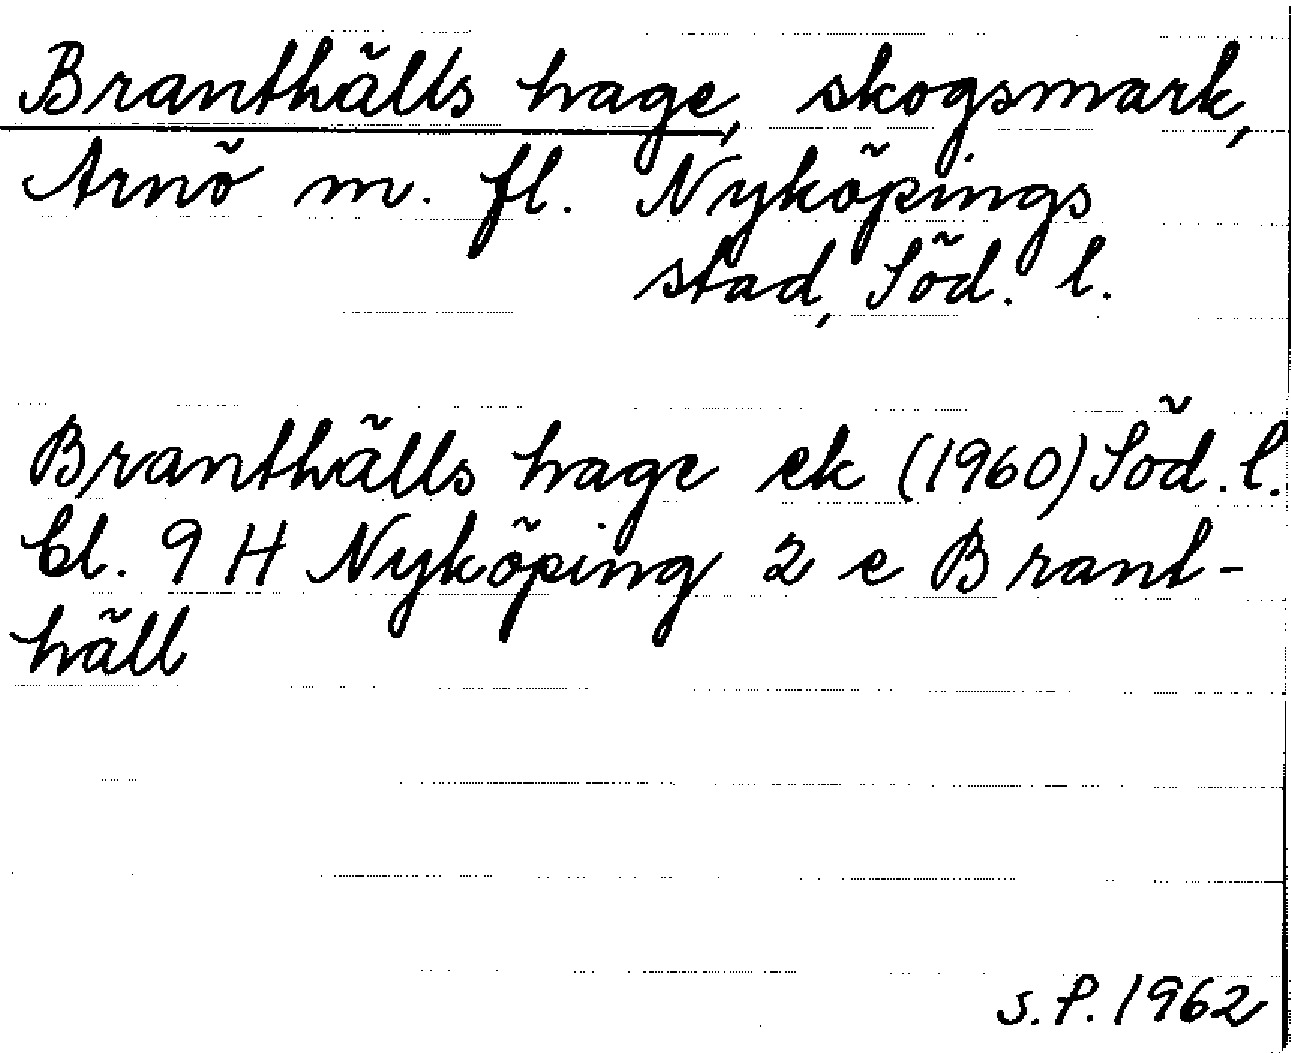 Branthälls hage, skogsmark,
Arnö m. fl. Nyköpings
stad, Söd. l.
Branthälls hage ek (1960) Söd. l.
bl. 9 H Nyköping 2 e Brant-
häll
S. P. 1962